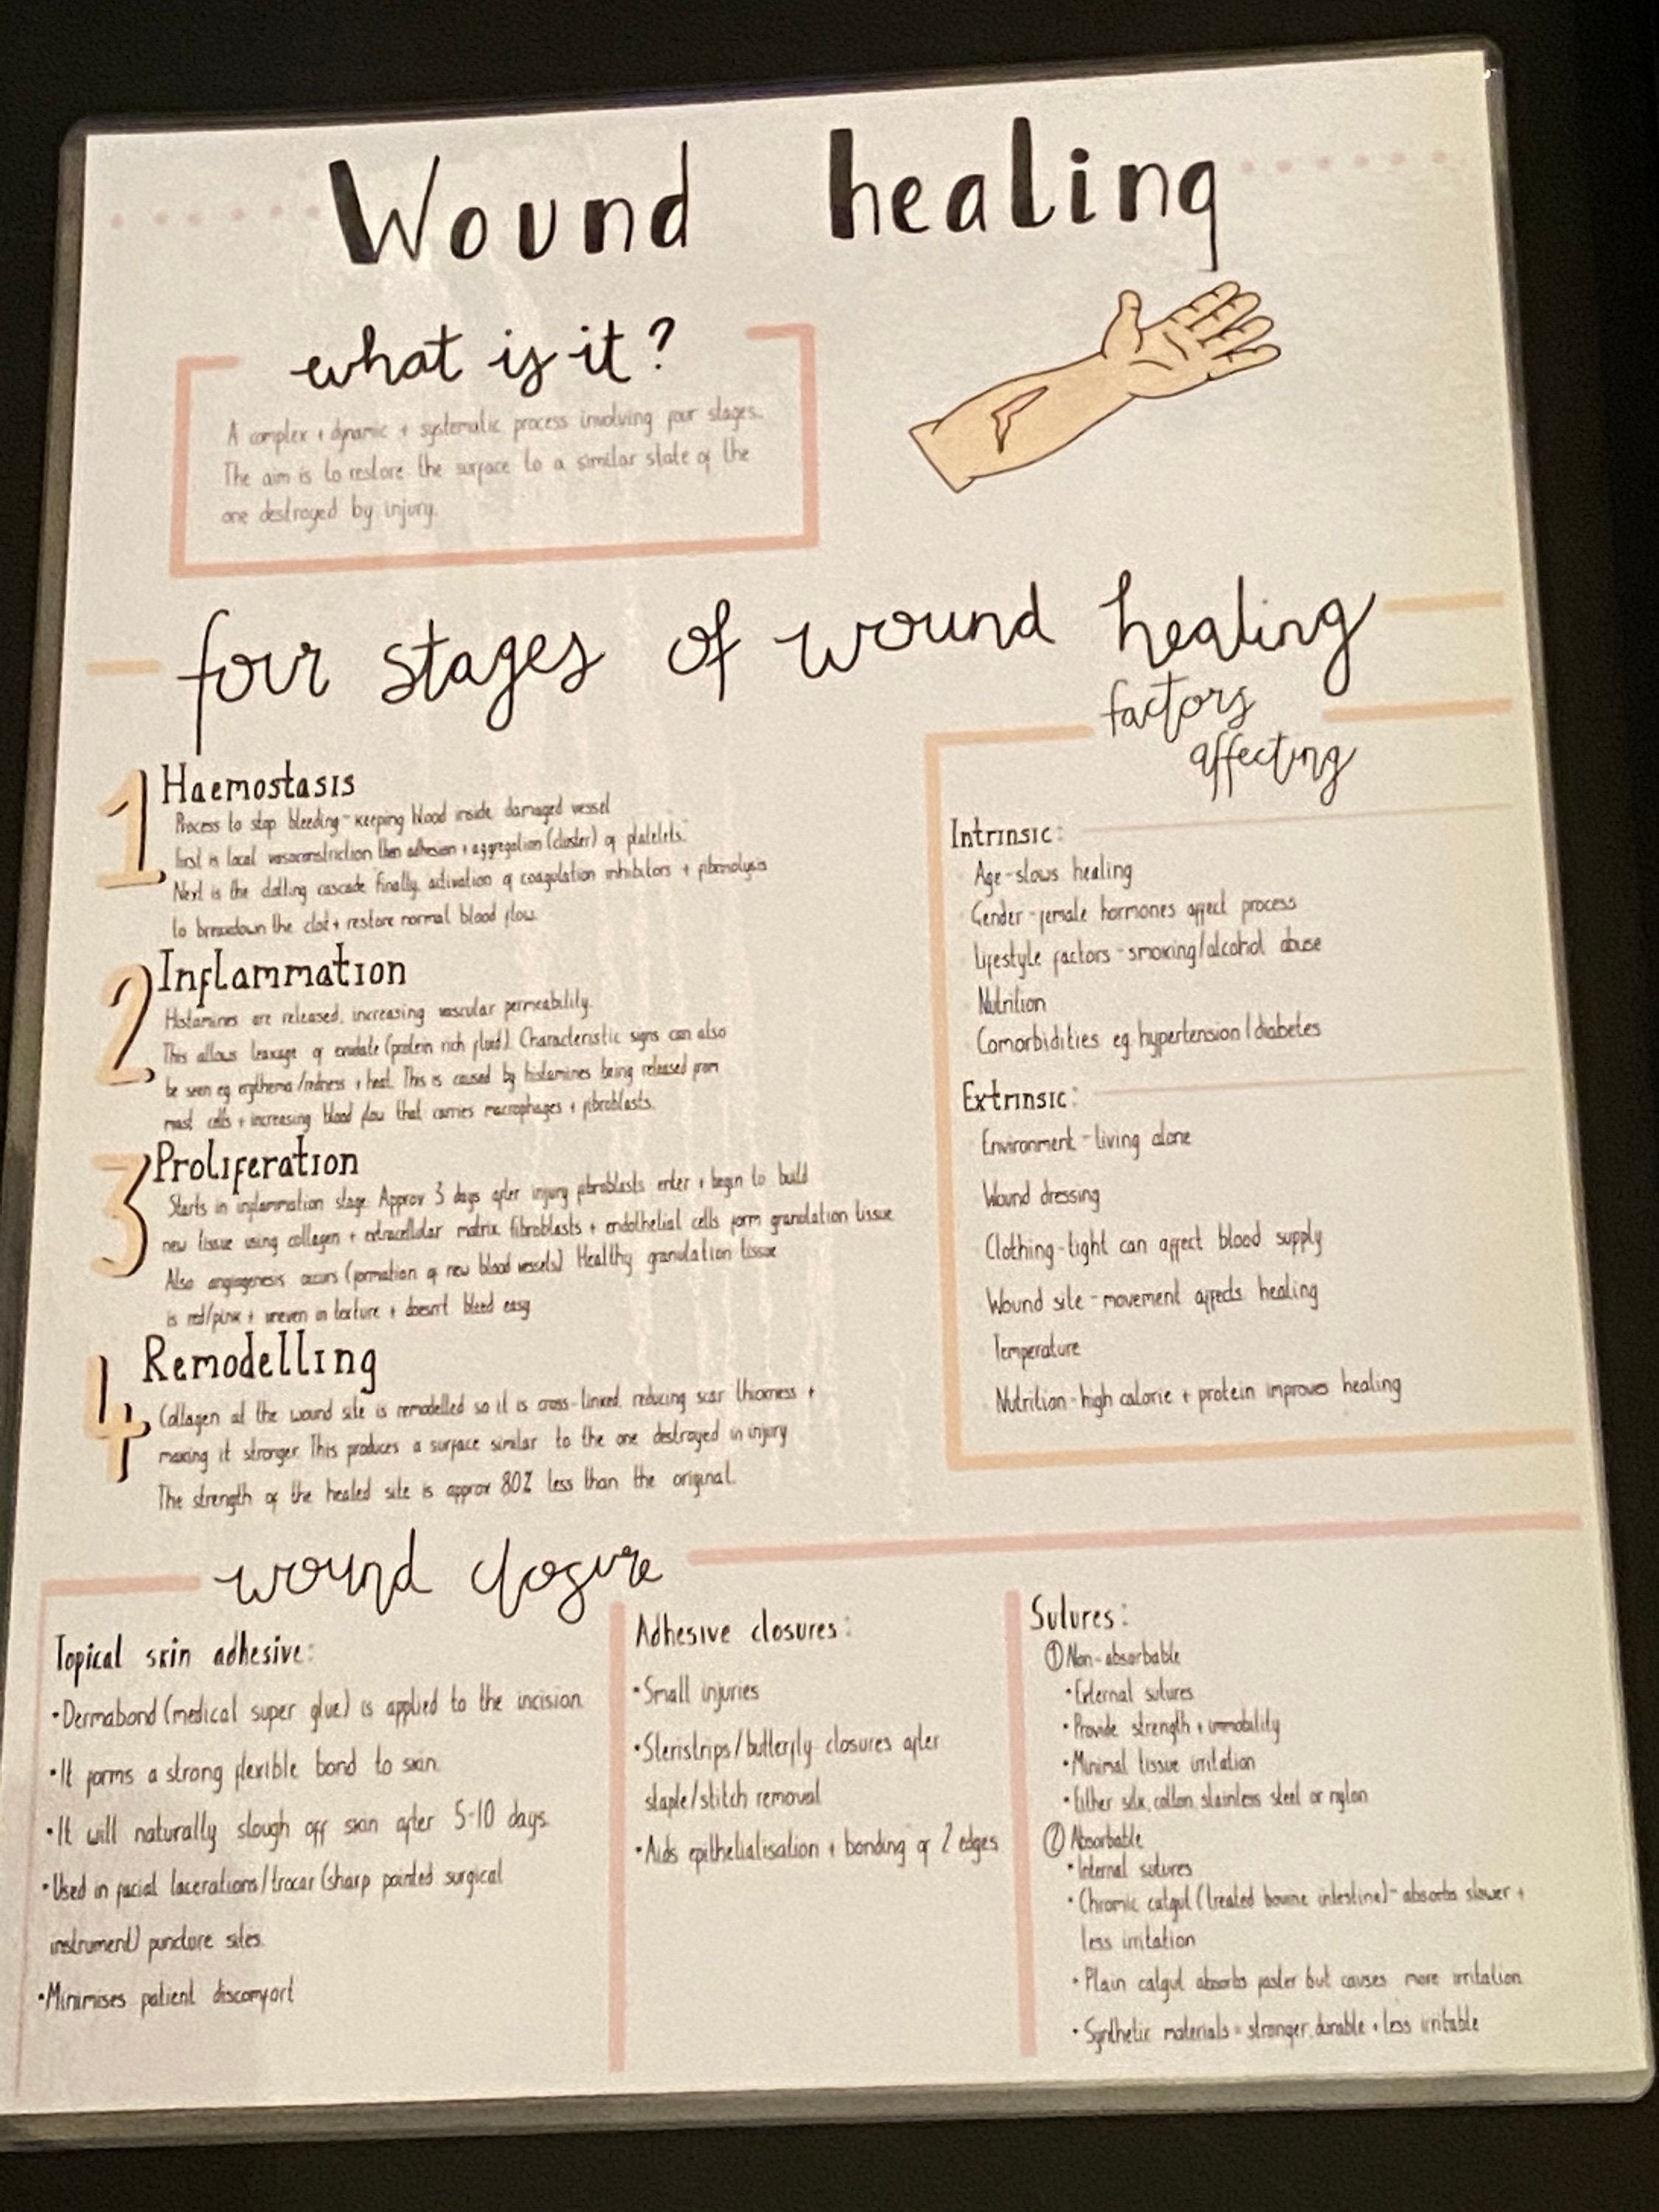 Wound healing
what is it?
A complex + dynamic + systematic process involving four stages.
The aim is to restore the surface to a similar state of the
one destroyed by injury.
four stages of wound healing
1 Haemostasis
Process to stop bleeding - keeping blood inside damaged vessel
First is local vasoconstriction then adhesion + aggregation (cluster) of platelets.
Next is the clotting cascade. Finally, activation of coagulation inhibitors + fibrinolysis
to breakdown the clot + restore normal blood flow.
2 Inflammation
Histamines are released, increasing vascular permeability.
This allows leakage of exudate (protein rich fluid). Characteristic signs can also
be seen eg erythema/redness + heat. This is caused by histamines being released from
mast cells + increasing blood flow that carries macrophages + fibroblasts.
3 Proliferation
Starts in inflammation stage. Approx 3 days after injury fibroblasts enter + begin to build
new tissue using collagen + extracellular matrix. fibroblasts + endothelial cells form granulation tissue.
Also angiogenesis occurs (formation of new blood vessels) Healthy granulation tissue
is red/pink + uneven in texture + doesn't bleed easy
4 Remodelling
Collagen at the wound site is remodelled so it is cross-linked, reducing scar thickness +
making it stronger. This produces a surface similar to the one destroyed in injury
The strength of the healed site is approx 80% less than the original.
factors
affecting
Intrinsic:
Age - slows healing
Gender - female hormones affect process
Lifestyle factors - smoking/alcohol abuse
Nutrition
Comorbidities eg. hypertension/diabetes
Extrinsic:
Environment - living alone
Wound dressing
Clothing - tight can affect blood supply
Wound site - movement affects healing
Temperature
Nutrition - high calorie + protein improves healing
wound closure
Topical skin adhesive:
• Dermabond (medical super glue) is applied to the incision.
• It forms a strong flexible bond to skin.
• It will naturally slough off skin after 5-10 days.
• Used in facial lacerations/trocar (sharp pointed surgical
instrument) puncture sites.
• Minimises patient discomfort
Adhesive closures:
• Small injuries
• Steristrips/butterfly closures after
staple/stitch removal
• Aids epithelialisation + bonding of 2 edges
Sutures:
① Non-absorbable
• External sutures
• Provide strength + immobility
• Minimal tissue irritation
• Either silk, cotton, stainless steel or nylon
② Absorbable
• Internal sutures
• Chromic catgut (treated bovine intestine) - absorbs slower +
less irritation
• Plain catgut absorbs faster but causes more irritation
• Synthetic materials = stronger, durable + less irritable